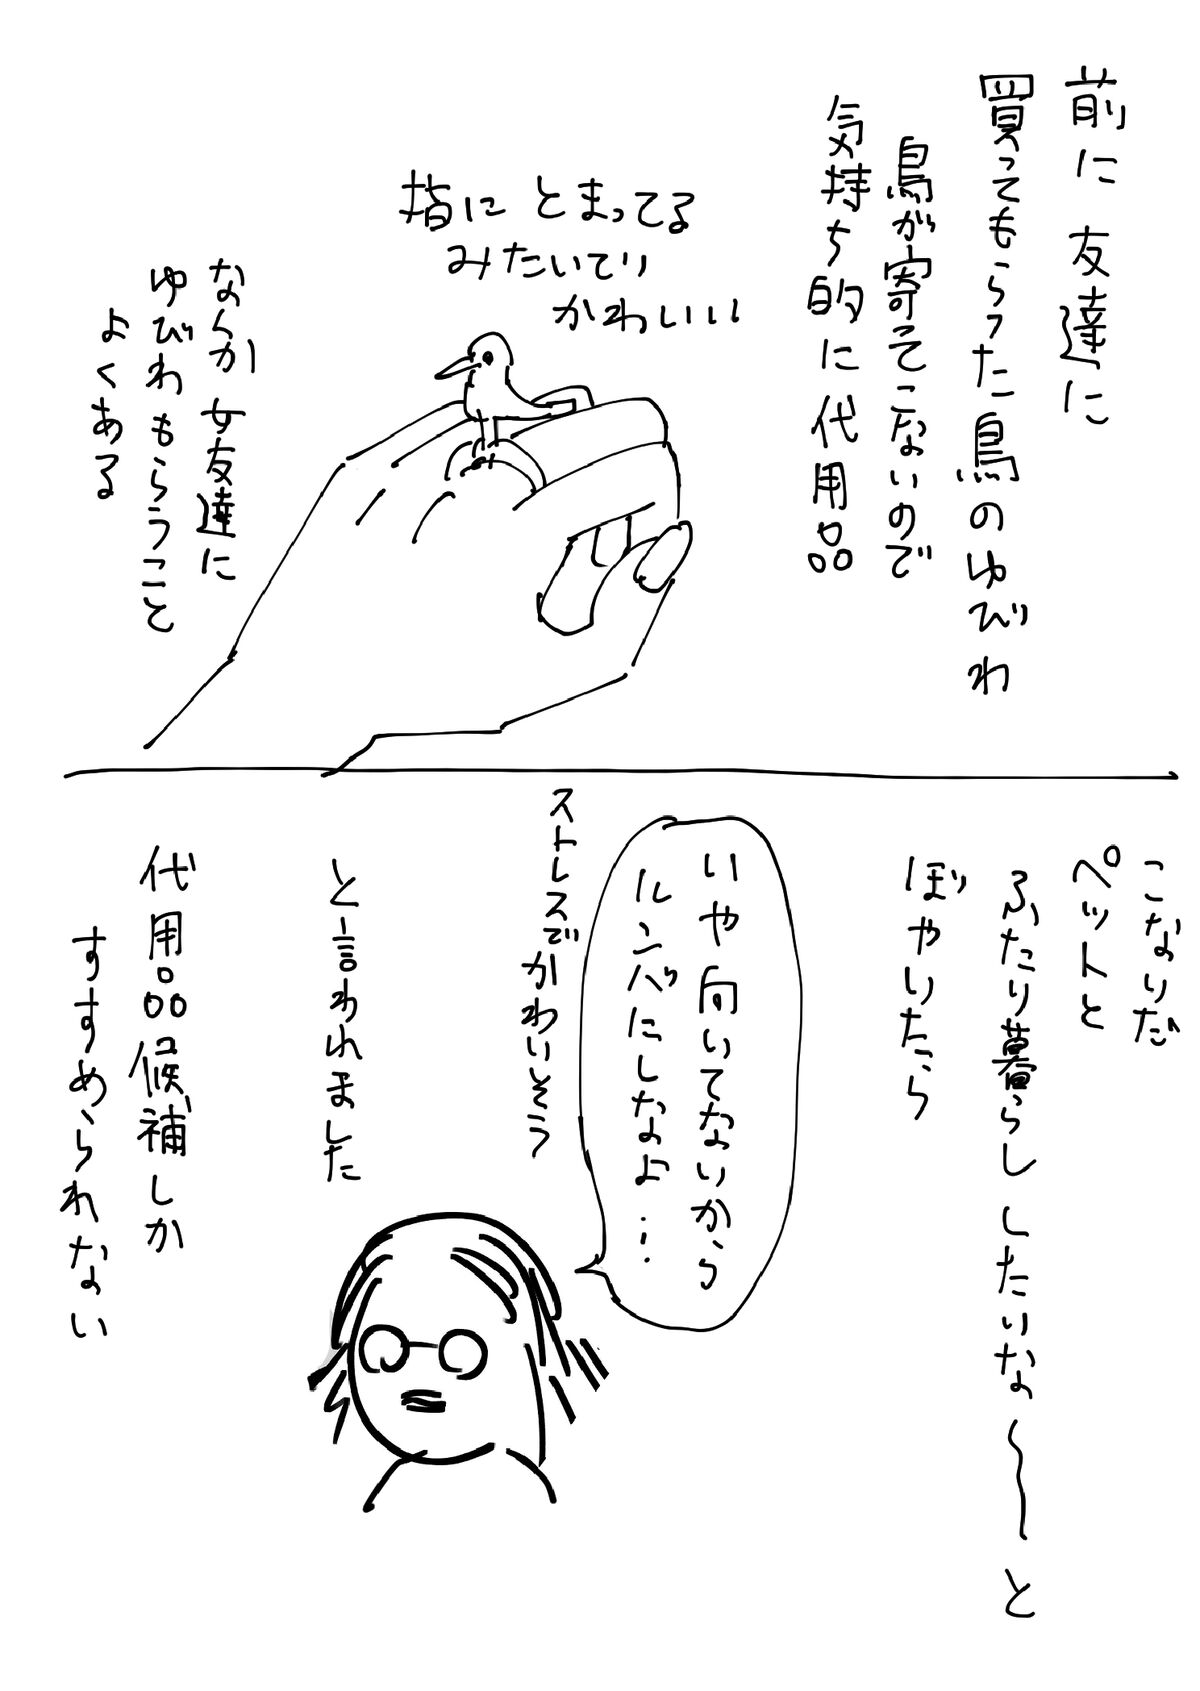 前に友達に
買ってもらった鳥のゆびわ
鳥が寄てこないので
気持ち的に代用品
指にとまってる
みたいで
かわいい
なんか女友達に
ゆびわもらうこと
よくある
こなりだ
ペットと
ふたり暮らししたいな〜と
ぼやいたら
いや向いてないから
ルンバにしなよ…
ストレスでかわいそう
と言われました
代用品候補しか
すすめられない